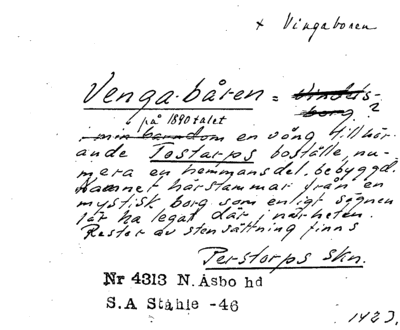 + Vingaboren
Venga-båren = Vindels-
borg ?
på 1890 talet
i min barndom en vång tillhör-
ande Tostarps boställe, nu-
mera en hemmansdel, bebyggd.
Namnet härstammar från en
mystisk borg som enligt sägnen
lär ha legat där i närheten.
Rester av stensättning finns
Perstorps skn.
Nr 4313 N. Åsbo hd
S.A Ståhle -46